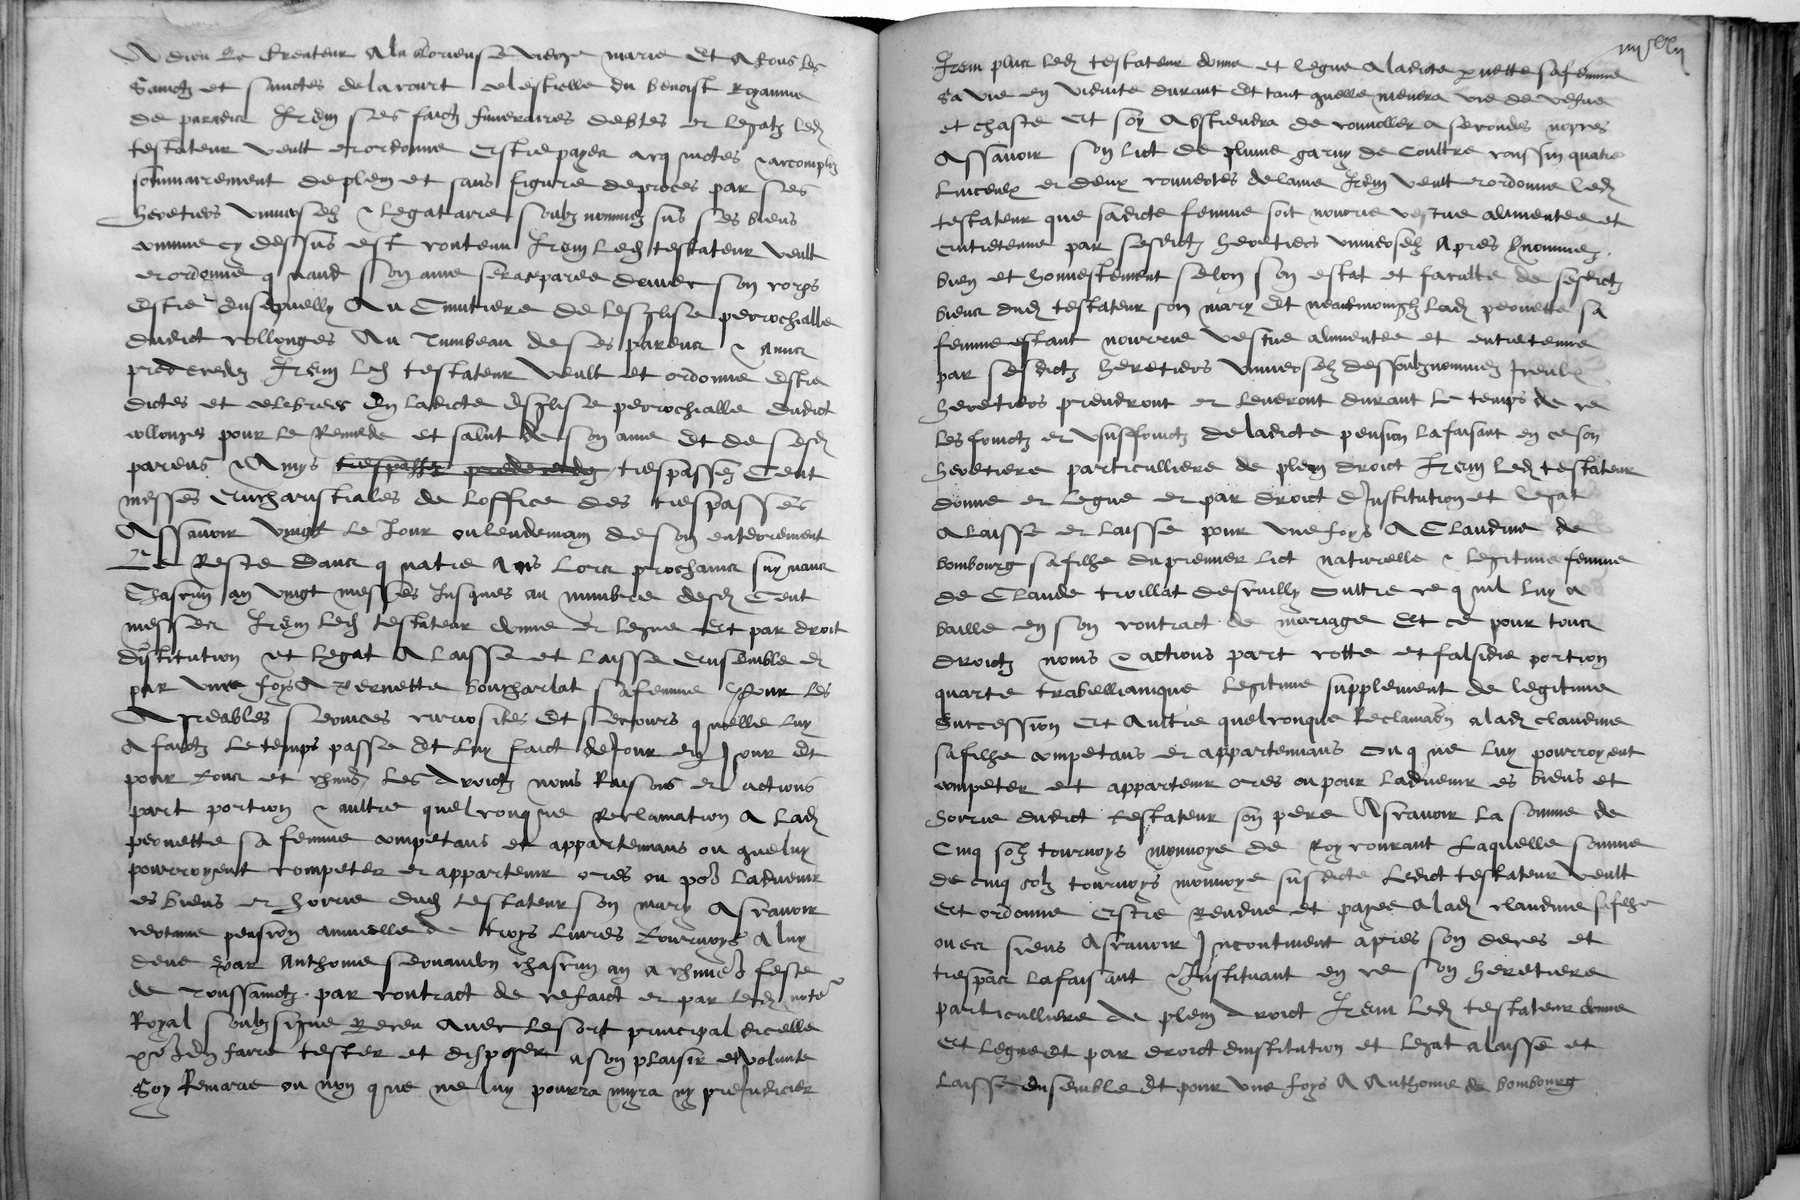 A dieu le Createur A la glorieuse vierge marie Et A tous les
Sainctz et sainctes de la court celestielle du benoist Royaume
de paradis Item ses faictz funeraires debtes et legatz led
testateur veult et ordonne Estre payes acquictes & accomplis
sommairement de plein et sans figure de proces par ses
heretiers universelz & legataire soubz nommez sus ses biens
comme cy dessus est contenu Item led testateur veult
et ordonne quand son ame sera separee davec son corps
Estre ensepvelly Au Cimitiere de Lesglise perrochialle
dudict collonges Au Tumbeau de ses parens & Amis
predecedez Item led testateur veult et ordonne Estre
dictes et celebrees En ladicte Esglise perrochialle dudict
collonges pour le Remede et salut de son ame Et de sesd
parens & Amys trespasses predecedez trespassez Cent
messes Eucharistiales de Loffice des trespasses
Assavoir vingt le Jour ou lendemain de son enterrement
Et le Reste dans quatre Ans lors prochains suyvans
Chascun an vingt messes Jusques au numbre desd Cent
messes Item led testateur donne et legue Et par droit
dinstitution et legat A laisse et laisse ensemble et
par une foys A pernette boucharlat sa femme Pour les
Agreables services curiosites Et secours quelle luy
A faictz le temps passe Et luy faict de Jour en Jour Et
pour tous et chascuns les droictz noms Raisons et actions
part portion & aultre quelconque Reclamation A lad
pernette sa femme competans et appartenans ou que luy
pourroyent competer et appartenir ores ou pour ladvenir
es biens et horrie dud testateur son mary Ascavoir
certaine pension annuelle de troys livres tournoys A luy
deue par Anthoine chascun an a chascune feste
de Toussainctz par contract de ce faict et par led note
Royal soubsigne Receu Avec le sort principal dicelle
pour en faire tester et disposer a son plaisir et volunte
Soy Remarie ou non que ne luy pourra nuyra ny preJudicier
Item plus led testateur donne et legue A ladicte pernette sa femme
sa vie en viduite durant Et tant quelle menera vie de vefve
et chaste Et soy Abstiendra de convoller a secondes nopces
Assavoir son lict de plume garny de Coultre coissin quatre
Linceulx et deux couvertes de laine Item veult et ordonne led
testateur que sadicte femme soit nourrie vestue alimentee et
Entretenue par sesdictz heretiers universelz Apres nommez
bien et honnestement selon son estat et faculte de sesdictz
biens dud testateur son mary Et neantmoingz lad pernette sa
femme estant nourrie vestue alimentee et entretenue
par sesdictz heretiers universelz dessoubznommez Iceulx
heretiers prendront et leveront durant le temps de ce
les fruictz et usuffruictz de ladicte pension la faisant en ce son
heretiere particulliere de plein droict Item led testateur
donne et legue et par droict dInstitution et legat
A laisse et laisse pour une foys A Claudine de
bombourg sa filhe du premier lict naturelle & legitime femme
de Claude troillat descuilly oultre ce quil luy A
baille en son contract de mariage Et ce pour tous
droictz noms & actions part cotte et falsidie portion
quarte trabellianique legitime supplement de legitime
Succession Et Aultre quelconque Reclamation a lad claudine
sa filhe competans et appartenans ou que luy pourroyent
competer et appartenir ores ou pour ladvenir es biens et
horrie dudict testateur son pere Ascavoir la somme de
Cinq solz tournoys monnoye de Roy courant Laquelle somme
de cinq solz tournoys monnoye susdicte Ledict testateur veult
Et ordonne Estre Rendue et payee A lad claudine sa filhe
ou es siens Ascavoir Incontinent apres son deces et
trespas la faisant & Instituant en ce son heretiere
particulliere de plein droict Item led testateur donne
Et legue Et par droict dinstitution et legat a laisse et
laisse ensemble Et pour une foys A Anthoine de bombourg